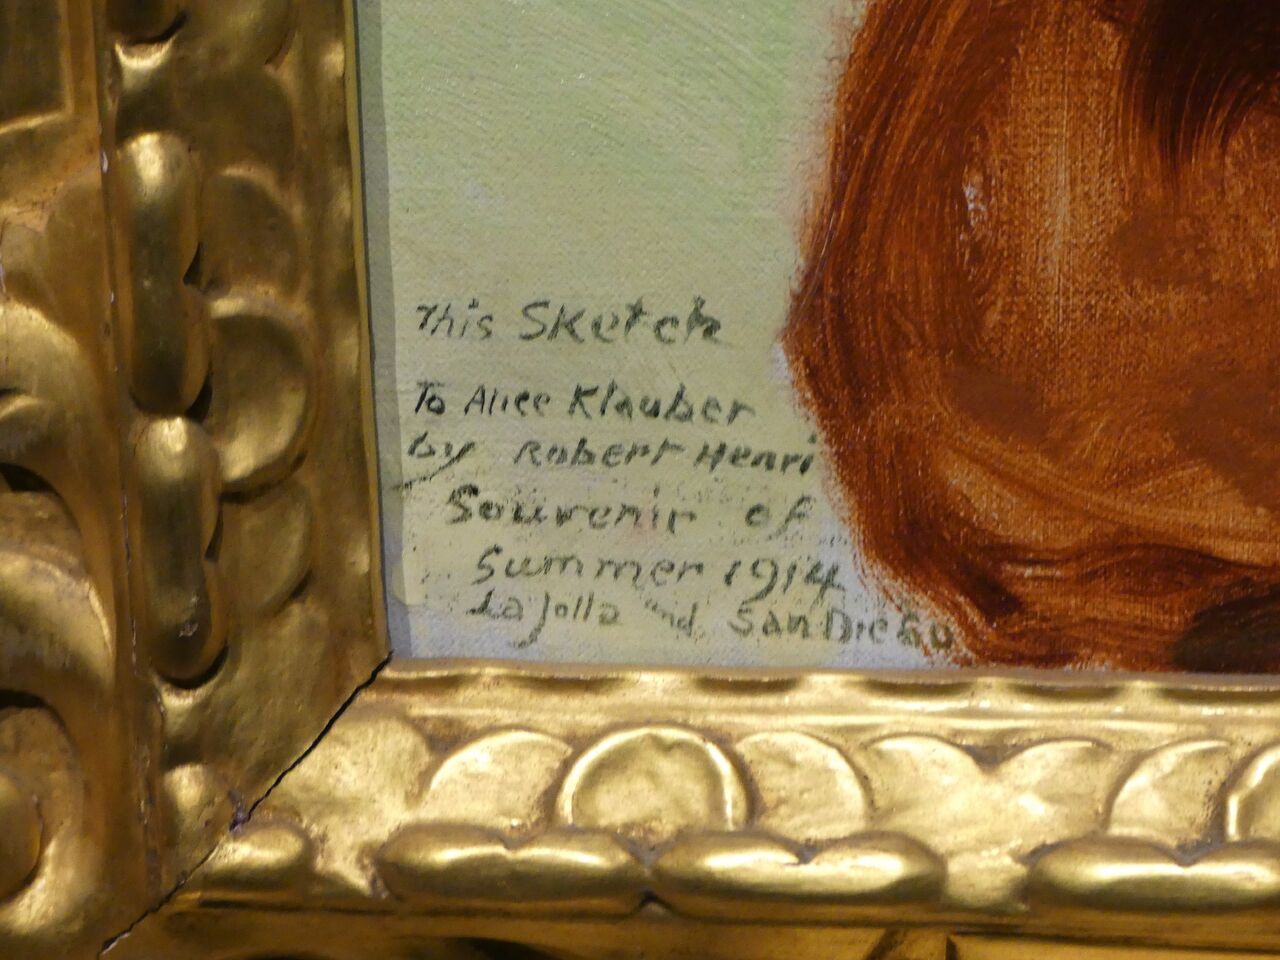 This Sketch
To Alice Klauber
by Robert Henri
Souvenir of
Summer 1914
La Jolla and San Diego